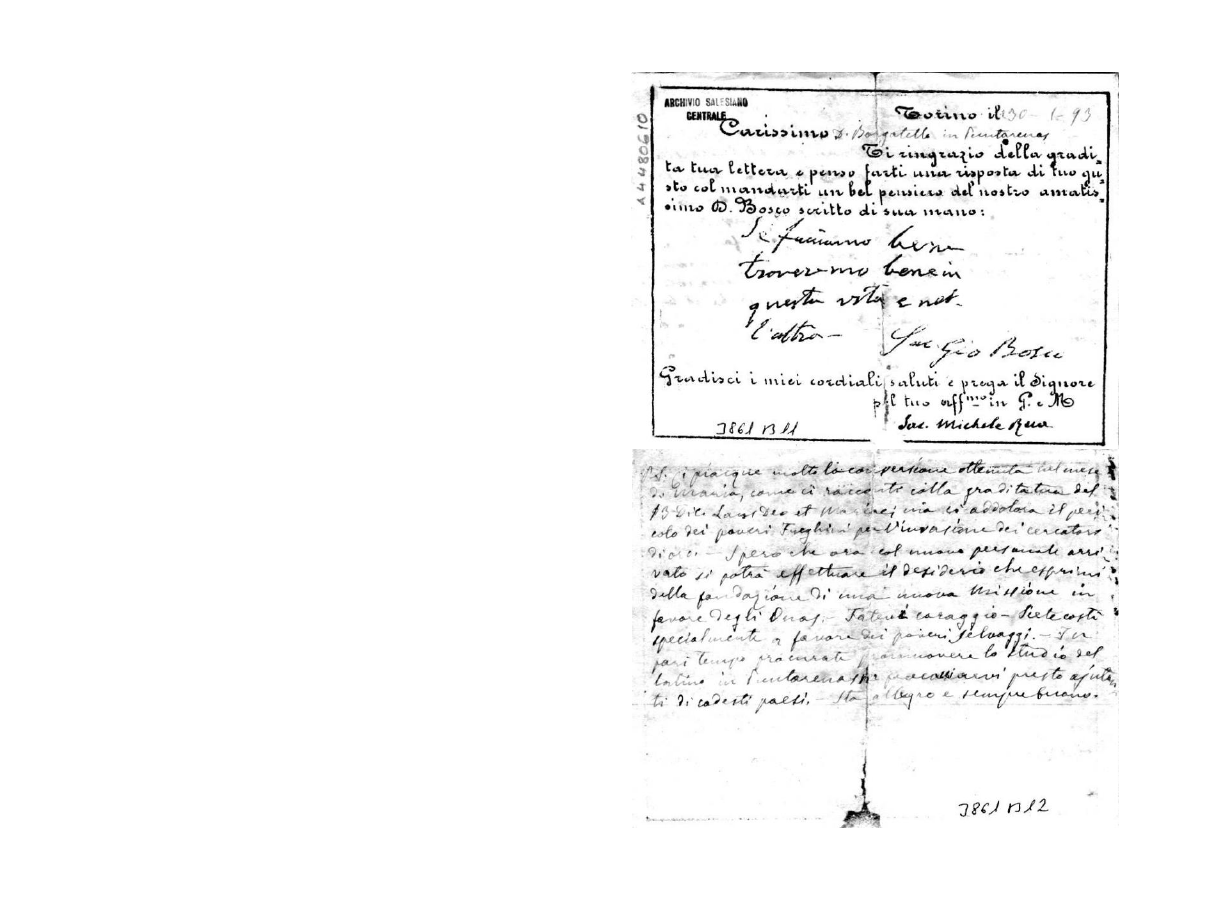 ARCHIVIO SALESIANO
CENTRALE
A4480610
Torino il 30-1-93
Carissimo D. Borgatello in Puntarenas
Ti ringrazio della gradi-
ta tua lettera e penso farti una risposta di tuo gu-
sto col mandarti un bel pensiero del nostro amatis-
simo D. Bosco scritto di sua mano:
Se facciamo bene
troveremo bene in
questa vita e nel-
l'altra-
Sac. Gio Bosco
Gradisci i miei cordiali saluti e prega il Signore
pel tuo aff.mo in G. e M
Sac. Michele Rua
3861 B 11
P.S. Ci piacque molto la conversione ottenuta nel mese
di Maria, come ci racconti colla gradita tua del
13 Dic. Laus Deo et Mariae; ma ci addolora il peri-
colo dei poveri Fueghini per l'invasione dei cercatori
di oro. - Spero che ora col nuovo personale arri-
vato si potrà effettuare il desiderio che esprimi
della fondazione di una nuova Missione in
favore degli Onas. - Fatevi coraggio - Siete costì
specialmente a favore dei poveri selvaggi. - In
pari tempo procurate promuovere lo studio del
latino in Puntarenas procacciarvi presto ajutan
ti di codesti paesi. - Sta allegro e sempre buono.
3861 B 12